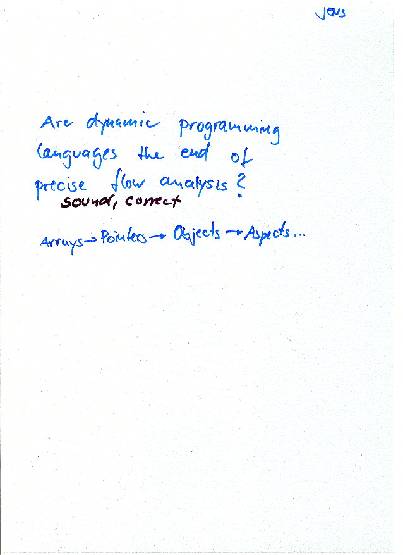 Jens
Are dynamic programming
languages the end of
precise flow analysis?
sound, correct
Arrays → Pointers → Objects → Aspects...